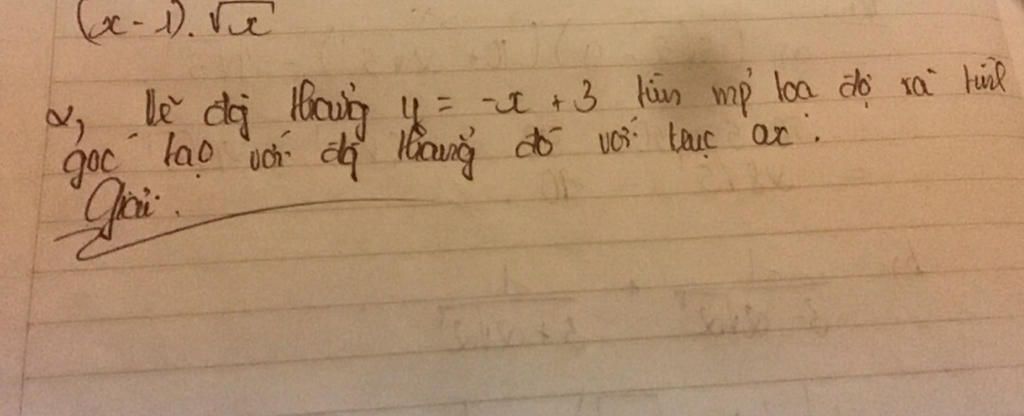 (x - 1). √x
2, Vẽ đg thẳng y = -x + 3 trên mp toạ độ và tính
góc tạo với đg thẳng đó với trục ox.
Giải.